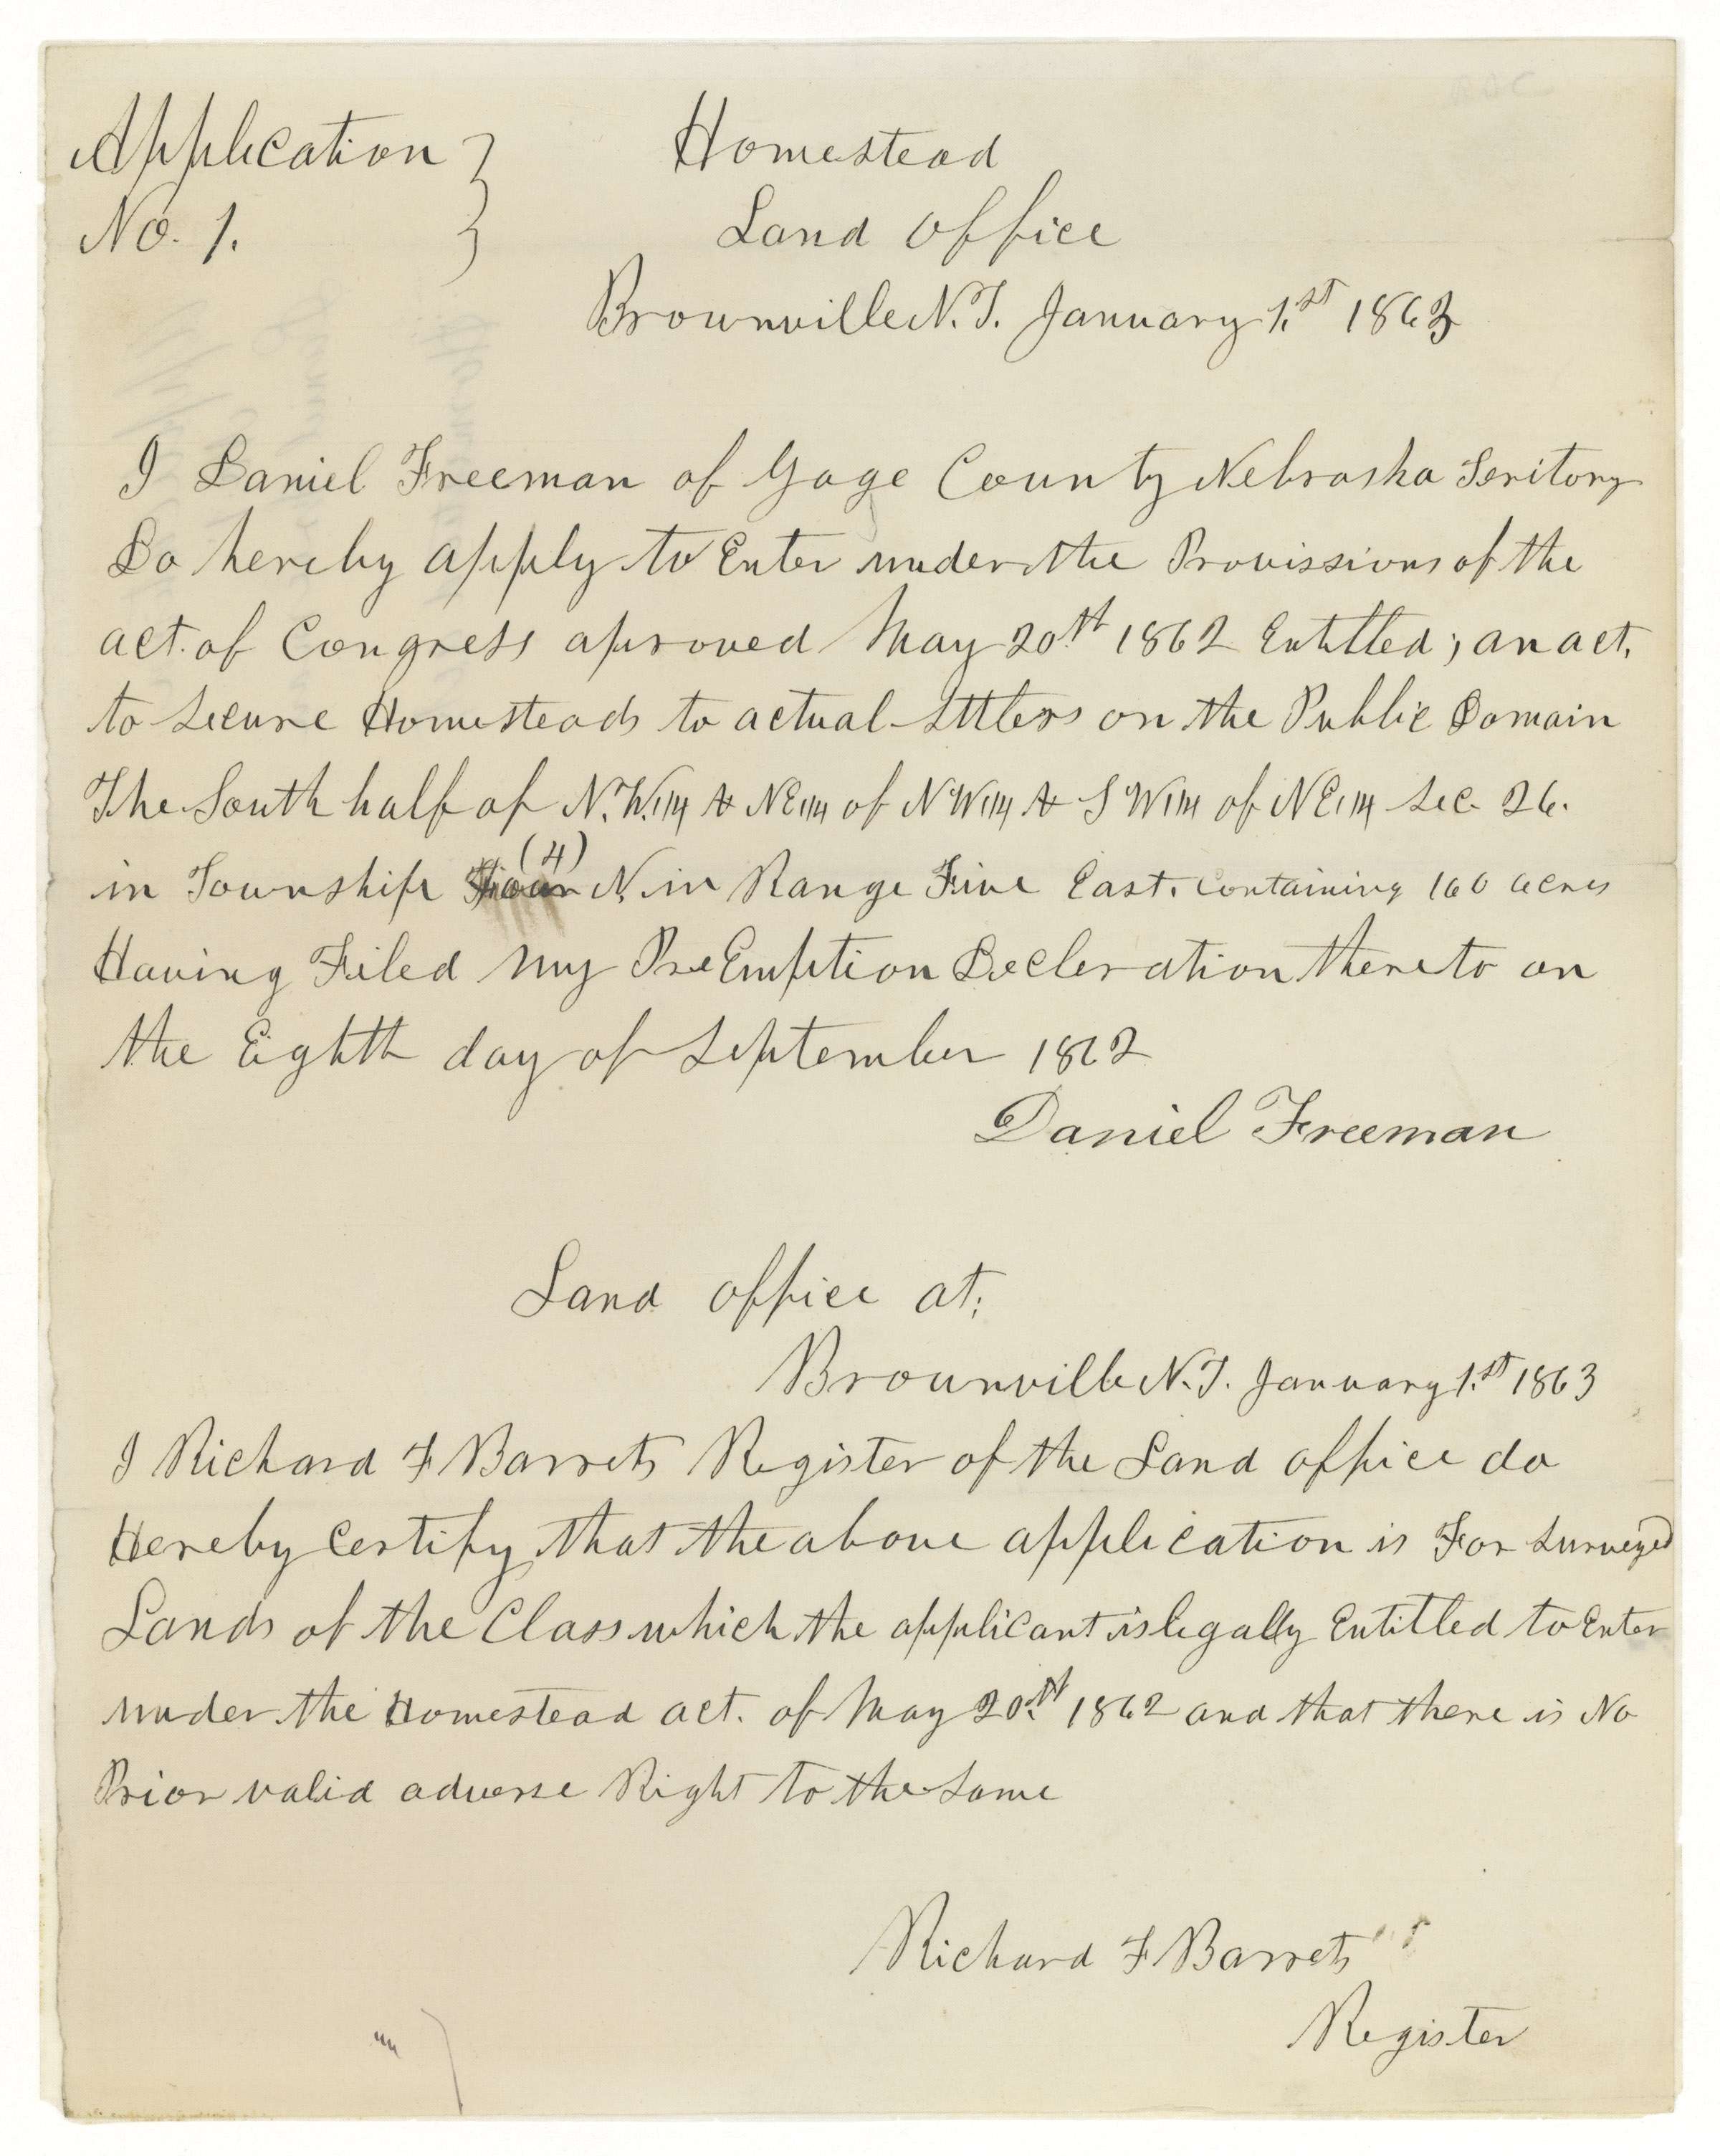 Application
No. 1.
Homestead
Land office
Brownville N.T. January 1.st 1863
I Daniel Freeman of Gage County Nebraska Teritory
Do hereby apply to Enter under the Provissions of the
act. of Congress aproved May 20th 1862 Entitled; an act.
to Secure Homesteads to actual Settlers on the Public Domain
The South half of N.W.1/4 & NE1/4 of NW1/4 & SW1/4 of NE1/4 Sec. 26.
(4)
in Township Four N. in Range Five East. containing 160 acres
Having Filed my PreEmption Decleration thereto on
the Eighth day of September 1862
Daniel Freeman
Land office at;
Brownville N.T. January 1.st 1863
I Richard F Barrets Register of the Land office do
Hereby Certify, that the above application is For Surveyed
Lands of the Class which the applicant is legally Entitled to Enter
under the Homestead act. of May 20th 1862 and that there is No
Prior valid adverse Right to the Same
Richard F Barrets
Register